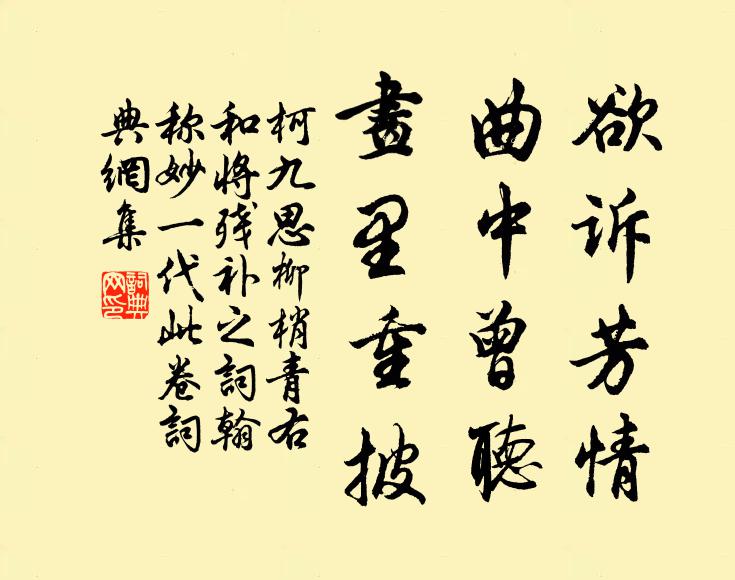 欲訴芳情
曲中曾聽
畫里重披
柯九思柳梢青右
和將殘补之詞翰
称妙一代此卷詞
典網集
詞典
网印